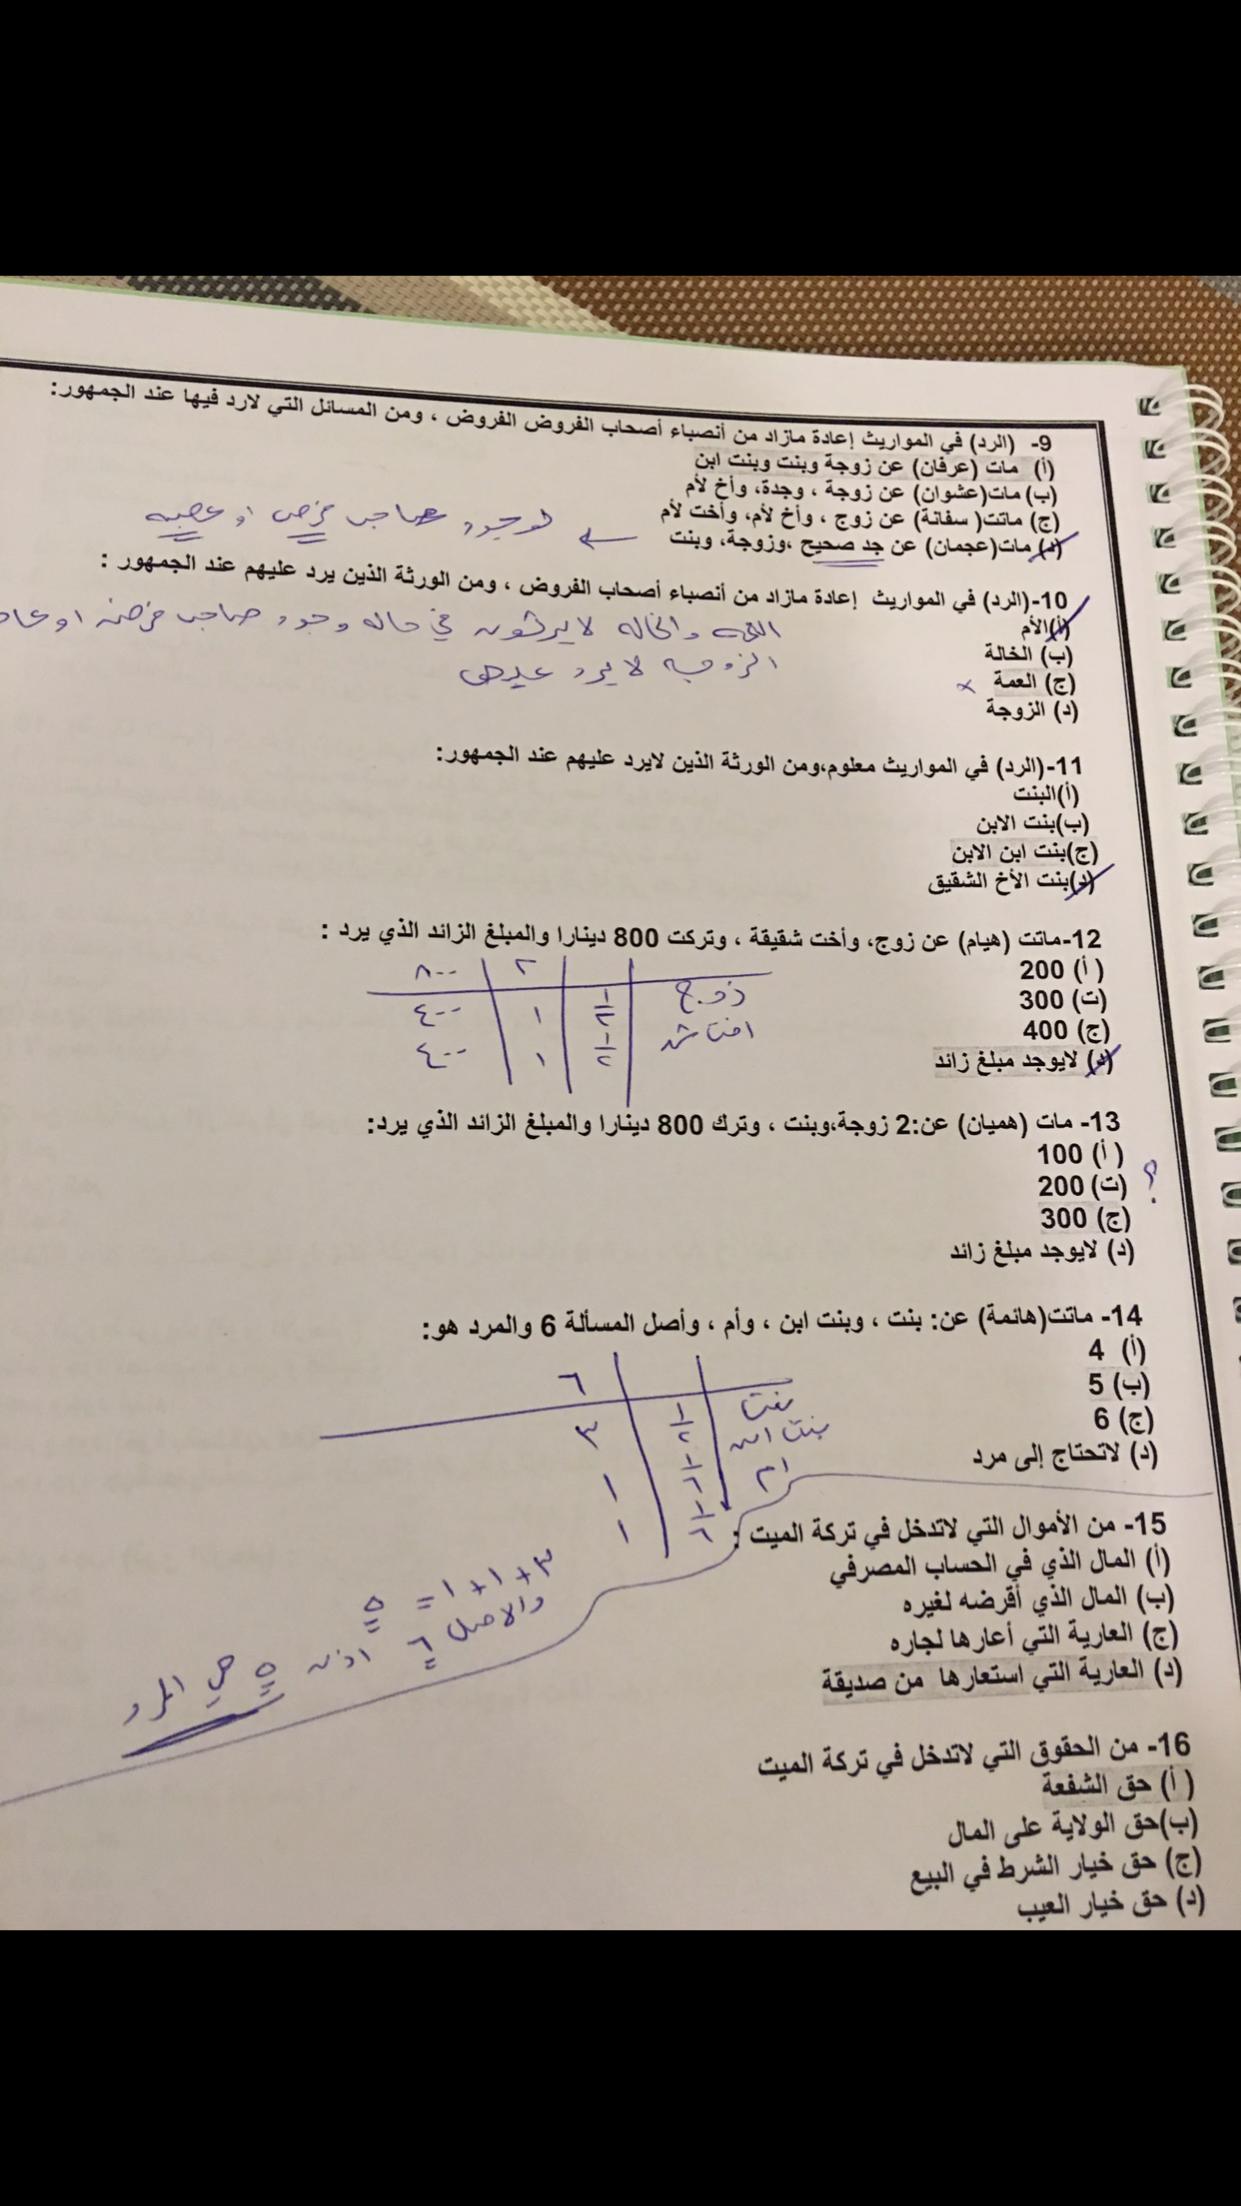 9- (الرد) في المواريث إعادة مازاد من أنصباء أصحاب الفروض الفروض ، ومن المسائل التي لارد فيها عند الجمهور:
(أ) مات (عرفان) عن زوجة وبنت وبنت ابن
(ب) مات(عشوان) عن زوجة ، وجدة، وأخ لأم
(ج) ماتت( سفانة) عن زوج ، وأخ لأم، وأخت لأم
(د) مات(عجمان) عن جد صحيح ،وزوجة، وبنت
لوجود صاحب فرض او عصبه
10-(الرد) في المواريث إعادة مازاد من أنصباء أصحاب الفروض ، ومن الورثة الذين يرد عليهم عند الجمهور :
(أ)الأم
العمه والخاله لا يرثون في حاله وجود صاحب فرض او
(ب) الخالة
الزوجه لا يرد عليهم
(ج) العمة ×
(د) الزوجة
11-(الرد) في المواريث معلوم،ومن الورثة الذين لايرد عليهم عند الجمهور:
(أ)البنت
(ب)بنت الابن
(ج)بنت ابن الابن
(د)بنت الأخ الشقيق
12-ماتت (هيام) عن زوج، وأخت شقيقة ، وتركت 800 دينارا والمبلغ الزائد الذي يرد :
( أ) 200
(ت) 300
(ج) 400
(د) لايوجد مبلغ زائد
٢ ٨٠٠
زوج ١/٢ ١ ٤٠٠
اخت ش ١/٢ ١ ٤٠٠
13- مات (هميان) عن:2 زوجة،وبنت ، وترك 800 دينارا والمبلغ الزائد الذي يرد:
( أ) 100
(ت) 200 ؟
(ج) 300
(د) لايوجد مبلغ زائد
14- ماتت(هائمة) عن: بنت ، وبنت ابن ، وأم ، وأصل المسألة 6 والمرد هو:
(أ) 4
(ب) 5
(ج) 6
(د) لاتحتاج إلى مرد
٦
بنت ١/٢ ٣
بنت ابن ١/٦ ١
ام ١/٦ ١
٣+١+١ = ٥
والاصل ٦ اذن ٥ هي المرد
15- من الأموال التي لاتدخل في تركة الميت :
(أ) المال الذي في الحساب المصرفي
(ب) المال الذي أقرضه لغيره
(ج) العارية التي أعارها لجاره
(د) العارية التي استعارها من صديقة
16- من الحقوق التي لاتدخل في تركة الميت
( أ) حق الشفعة
(ب)حق الولاية على المال
(ج) حق خيار الشرط في البيع
(د) حق خيار العيب